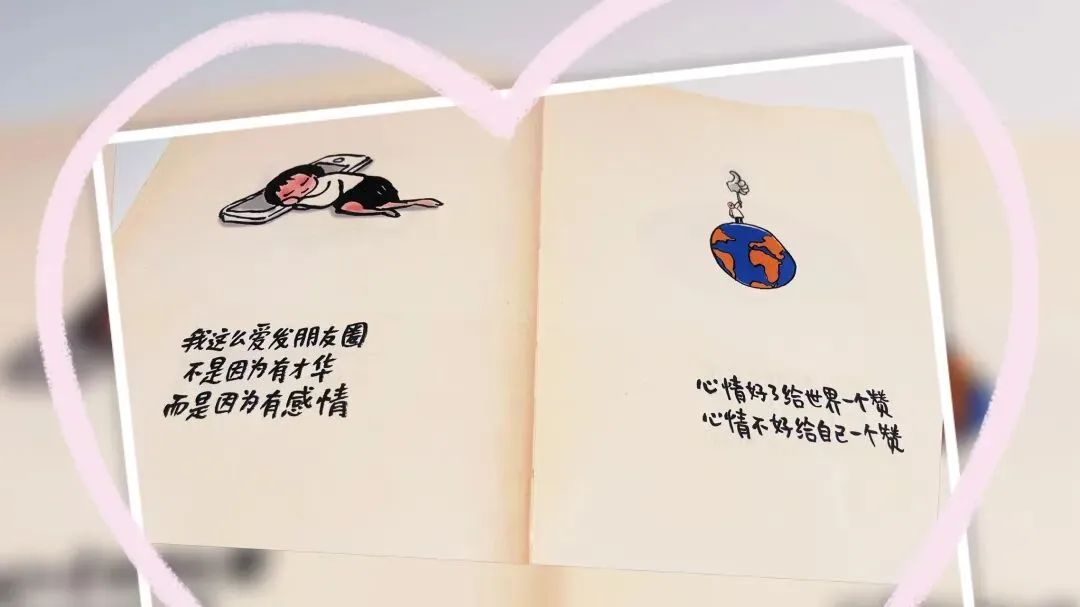 我这么爱发朋友圈
不是因为有才华
而是因为有感情
心情好了给世界一个赞
心情不好给自己一个赞